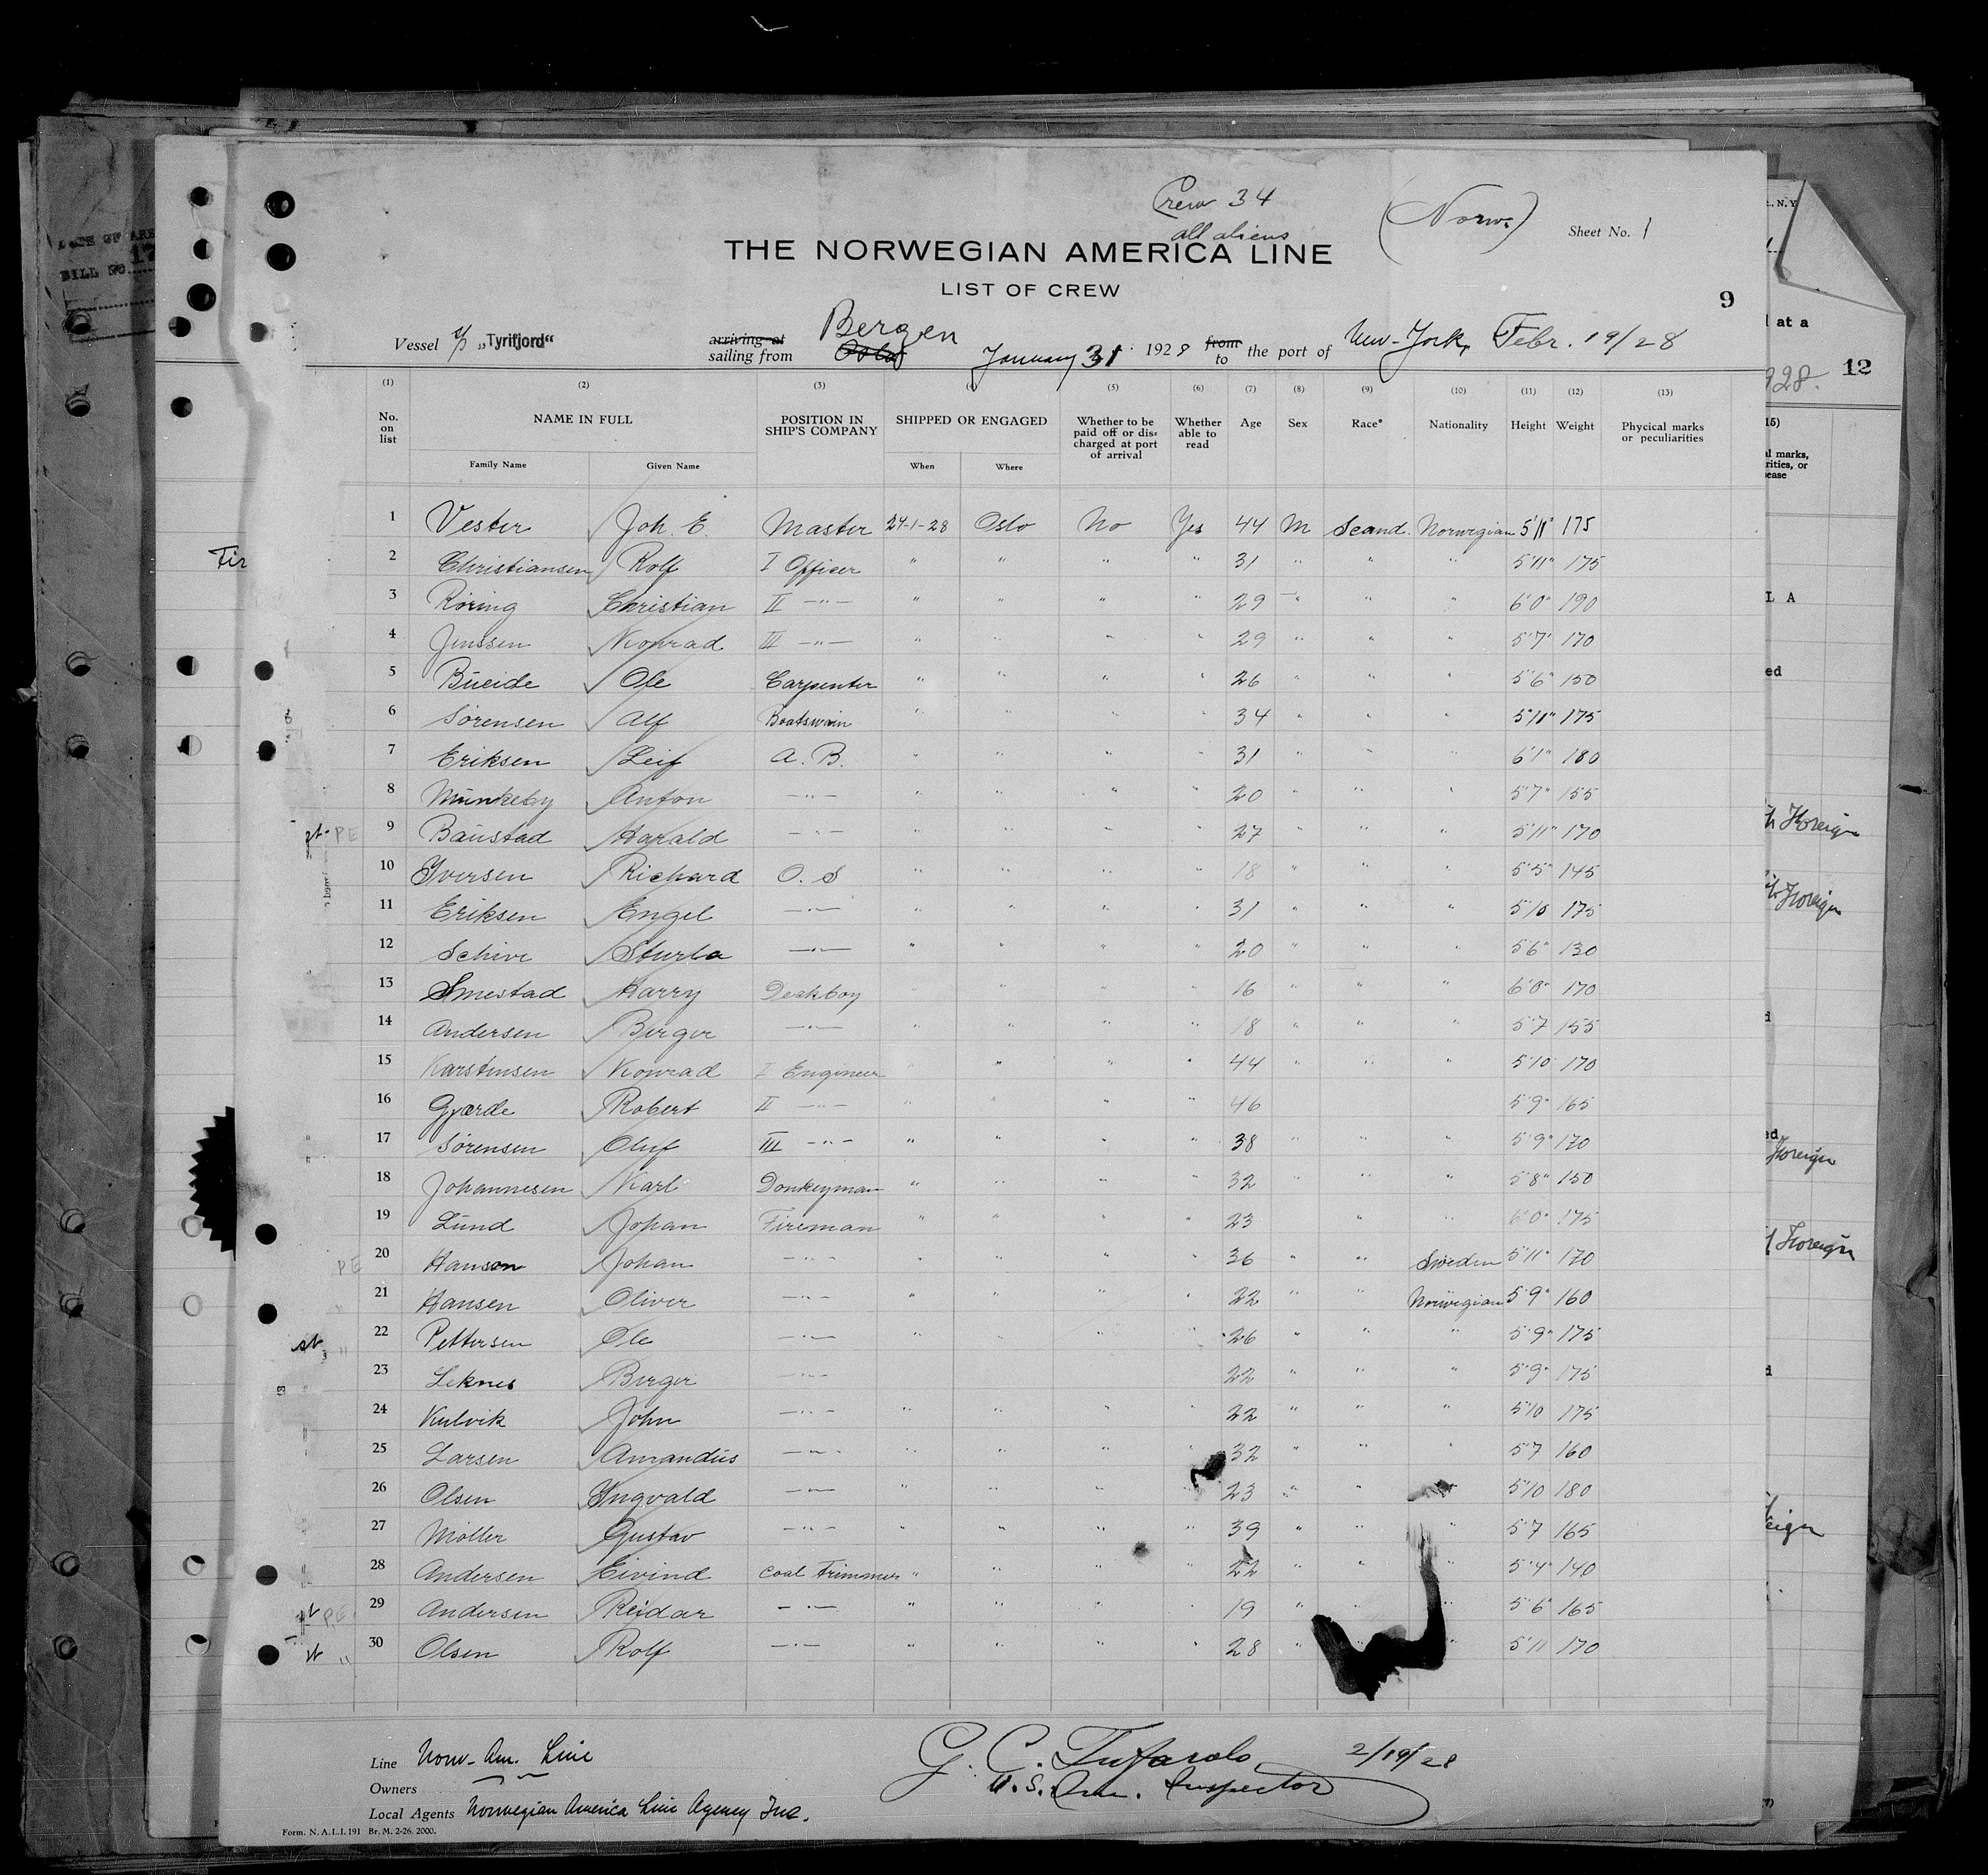 Crew 34
all aliens
(Norw.)
Sheet No. 1
THE NORWEGIAN AMERICA LINE
LIST OF CREW
9
Vessel s/s „Tyrifjord“ arriving at sailing from Oslo Bergen January 31 1928 from to the port of New-York, Febr. 19/28
(1) (2) (3) (4) (5) (6) (7) (8) (9) (10) (11) (12) (13)
No. on list NAME IN FULL POSITION IN SHIP'S COMPANY SHIPPED OR ENGAGED Whether to be paid off or discharged at port of arrival Whether able to read Age Sex Race* Nationality Height Weight Physical marks or peculiarities
Family Name Given Name When Where
1 Vester Joh. E. Master 24-1-28 Oslo No Yes 44 M Scand. Norwegian 5'11" 175
2 Christiansen Rolf I Officer " " " " 31 " " " 5'11" 175
3 Röring Christian II —"— " " " " 29 " " " 6'0" 190
4 Jenssen Konrad III —"— " " " " 29 " " " 5'7" 170
5 Bueide Ole Carpenter " " " " 26 " " " 5'6" 150
6 Sörensen Alf Boatswain " " " " 34 " " " 5'11" 175
7 Eriksen Leif A. B. " " " " 31 " " " 6'1" 180
8 Munkeby Anton —"— " " " " 20 " " " 5'7" 155
st- PE 9 Baustad Harald —"— " " " " 27 " " " 5'11" 170
10 Iversen Richard O. S " " " " 18 " " " 5'5" 145
11 Eriksen Engel —"— " " " " 31 " " " 5'10 175
12 Schive Sturla —"— " " " " 20 " " " 5'6" 130
13 Smestad Harry Deckboy " " " " 16 " " " 6'0" 170
14 Andersen Birger —"— " " " " 18 " " " 5'7 155
15 Karstensen Konrad I Engineer " " " " 44 " " " 5'10 170
16 Gjærde Robert II —"— " " " " 46 5'9" 165
17 Sörensen Oluf III —"— " " " " 38 " " " 5'9" 170
18 Johannesen Karl Donkeyman " " " " 32 " " " 5'8" 150
19 Lund Johan Fireman " " " " 23 " " 6'0" 175
PE 20 Hanson Johan —"— " " " " 36 " " Sweden 5'11" 170
" 21 Hansen Oliver —"— " " " " 22 " " Norwegian 5'9" 160
st " 22 Pettersen Ole —"— " " " " 26 " " " 5'9" 175
23 Leknes Birger —"— " " " " 22 " " " 5'9" 175
24 Kulvik John —"— " " " " 22 " " " 5'10 175
25 Larsen Amandus —"— " " " " 32 " " " 5'7 160
26 Olsen Ingvald —"— " " " " 23 " " " 5'10 180
27 Möller Gustav —"— " " " " 39 " " " 5'7 165
28 Andersen Eivind Coal trimmer " " " " 22 " " " 5'4" 140
st PE 29 Andersen Reidar —"— " " " " 19 " " " 5'6" 165
st " 30 Olsen Rolf —"— " " " " 28 " " 5'11 170
Line Norw. Am. Line
Owners
Local Agents Norwegian America Line Agency Inc.
G. C. Tufarolo 2/19/28
U.S. Imm. Inspector
Form. N. A. L. I. 191 Br. M. 2-26. 2000.
BILL NO. 17
Fir
. N. Y
at a
12
928.
L A
ed
Foreign
Foreign
Foreign
Foreign